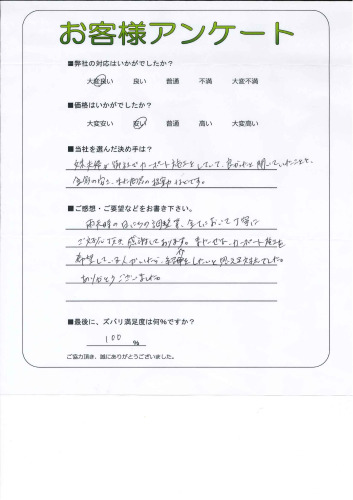 お客様アンケート
■弊社の対応はいかがでしたか?
大変良い 良い 普通 不満 大変不満
■価格はいかがでしたか?
大変安い 安い 普通 高い 大変高い
■当社を選んだ決め手は?
カーポート施工をしていて、良かったと聞いていたことと、
金額の安さ、
■ご感想・ご要望などをお書き下さい。
雨天時の 調整等、全てにおいて丁寧に
ご対応頂き、感謝しております。 カーポート施工を
希望している人がいたら、 したいと思える対応でした。
ありがとうございました。
■最後に、ズバリ満足度は何%ですか?
100 %
ご協力頂き、誠にありがとうございました。